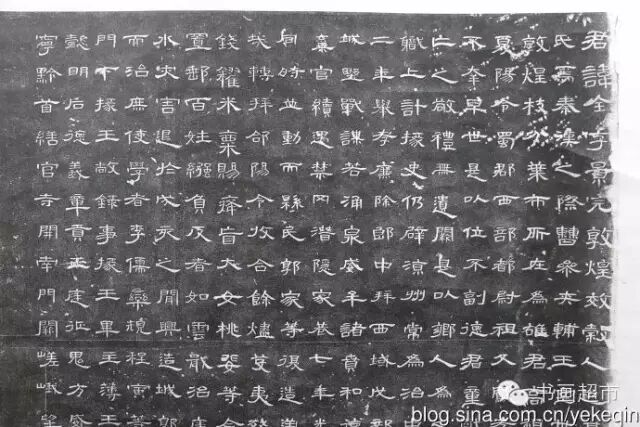 君諱全字景完敦煌效穀人也
氏焉秦漢之際曹參夾輔王室
敦煌枝分葉布所在為雄君高
夏陽令蜀郡西部都尉祖父鳳
不幸早世是以位不副德君童
仁之敬禮無遺闕是以鄉人為
職上計掾史仍辟涼州常為治中
二年舉孝廉除郎中拜西域戊部
城野戰謀若涌泉威牟諸賁和
棄官續遇禁冈潛隱家巷七年光
同時並動而縣民郭家等復造逆
烖轉拜郃陽令收合餘燼芟夷殘
錢糴米粟賜癃盲大女桃婓等合
置郵百姓繦負反者如雲戢治廧
水灾害退於戌亥之間興造城郭
而治庶使學者李儒欒規程寅等
門下掾王敞錄事掾王畢主簿王
懿明后德義章貢王庭征鬼方威
寧黔首繕官寺開南門闕嵯峨望
书画超市
blog.sina.com.cn/yekeqin